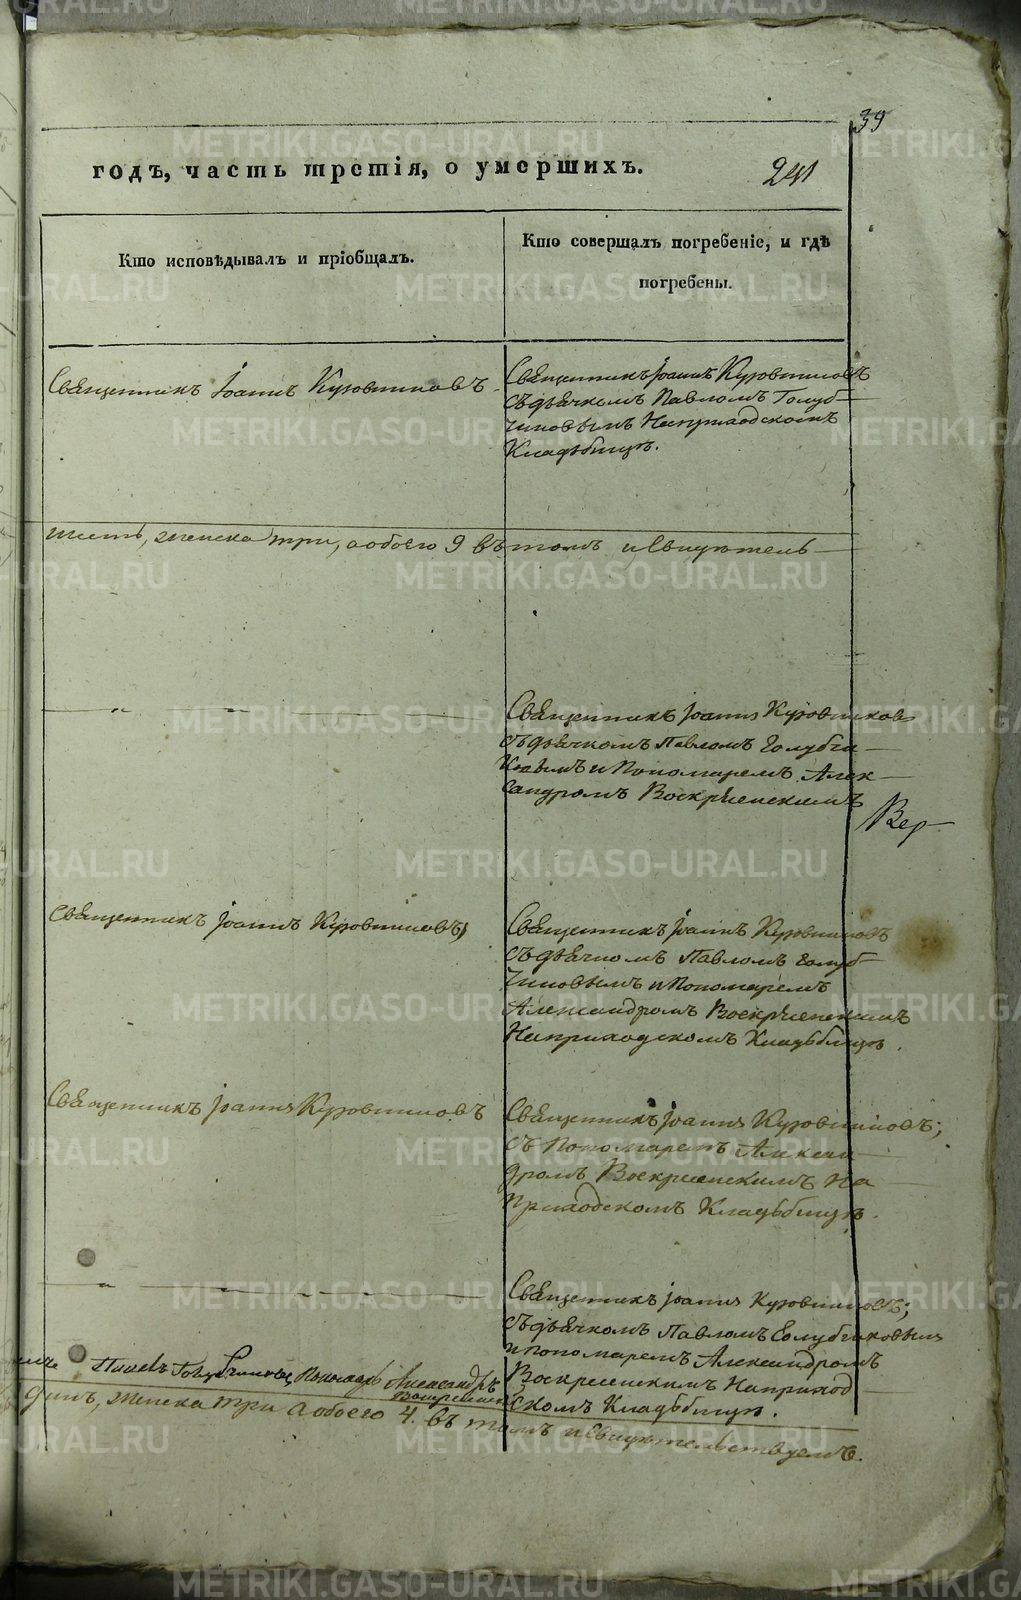 39
годъ, часть третія, о умершихъ.
241
Кто исповѣдывалъ и пріобщалъ.
Кто совершалъ погребеніе, и гдѣ
погребены.
Священникъ Іоаннъ Кузовниковъ
Священникъ Іоаннъ Кузовниковъ
съ дьячкомъ Павломъ Голуб-
чиковымъ На приходскомъ
Кладьбищѣ.
шесть, женска три, а обоего 9 въ томъ и свидѣтель-
Священникъ Іоаннъ Кузовниковъ
съ дьячкомъ Павломъ Голубчи-
ковымъ и Пономаремъ Алек-
сандромъ Воскресенскимъ
Вер-
Священникъ Іоаннъ Кузовниковъ
Священникъ Іоаннъ Кузовниковъ
съ дьячкомъ Павломъ Голуб-
чиковымъ и Пономаремъ
Александромъ Воскресенскимъ
На приходскомъ Кладьбищѣ.
Священникъ Іоаннъ Кузовниковъ
Священникъ Іоаннъ Кузовниковъ;
съ Пономаремъ Алексан-
дромъ Воскресенскимъ На
Приходскомъ Кладьбищѣ.
Священникъ Іоаннъ Кузовниковъ;
съ дьячкомъ Павломъ Голубчиковымъ
и пономаремъ Александромъ
Воскресенскимъ На приход
скомъ Кладьбищѣ.
Павелъ Голубчиковъ Пономарь Александръ
Воскресенск
динъ, женска три а обоего 4. въ томъ и свидѣтельствуемъ.
METRIKI.GASO-URAL.RU